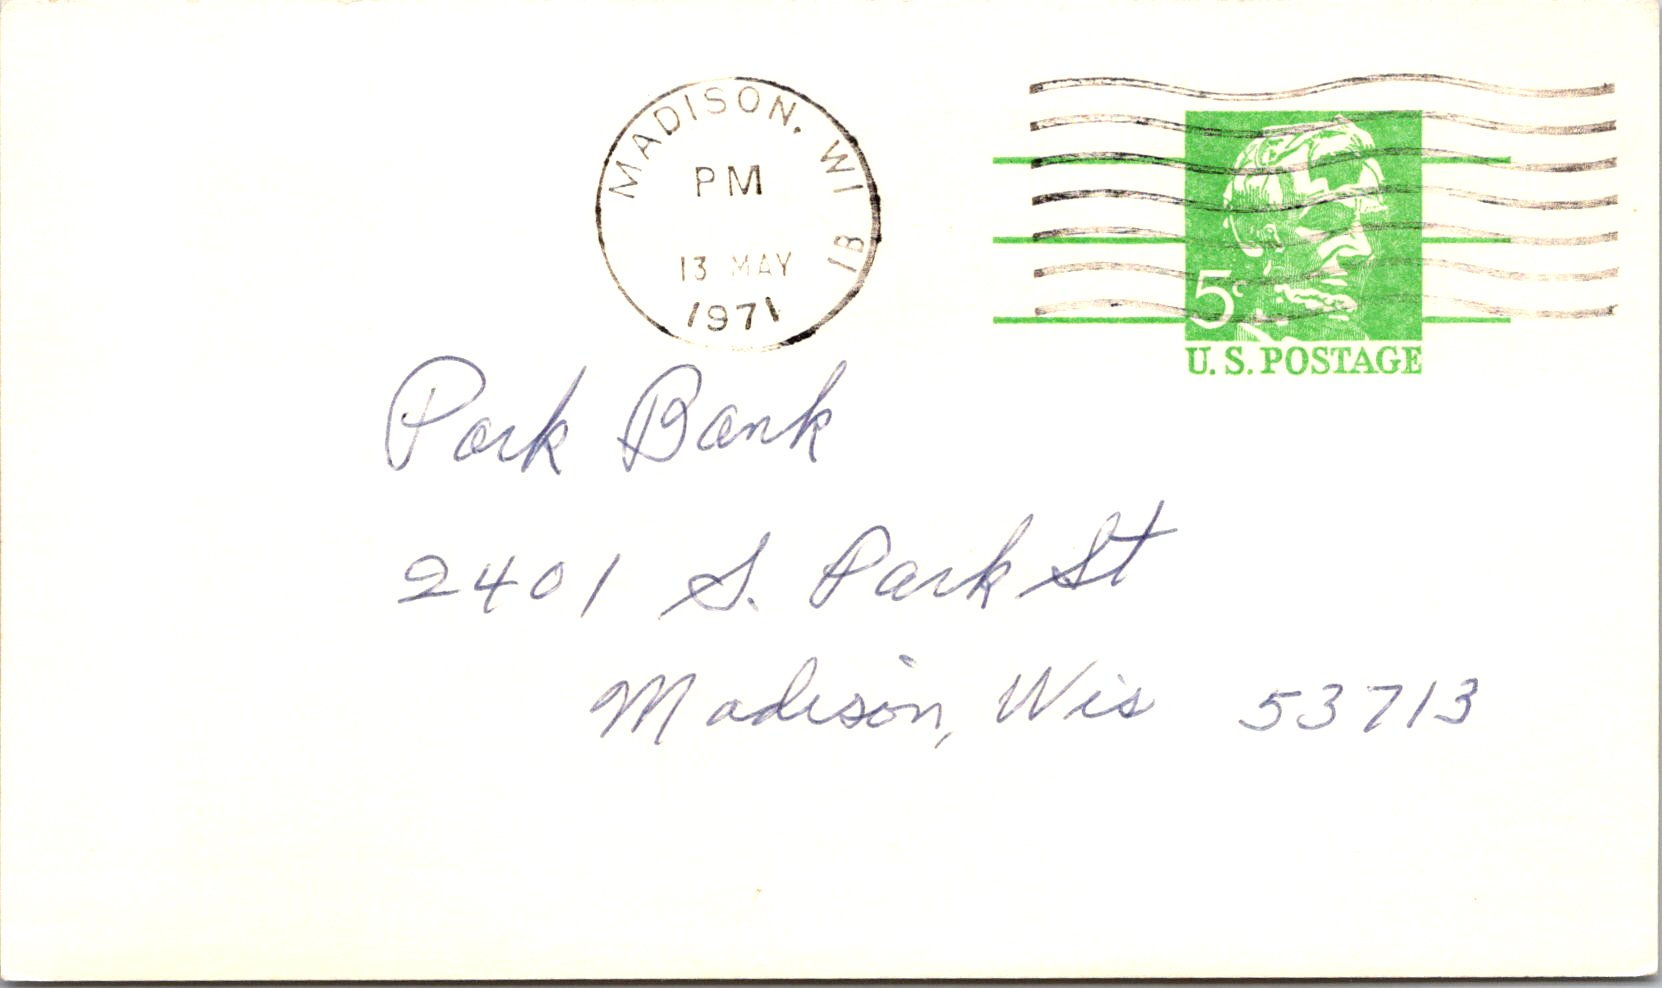 MADISON, WI
PM
13 MAY
1971
1B
5c
U.S. POSTAGE
Park Bank
2401 S. Park St
Madison, Wis 53713